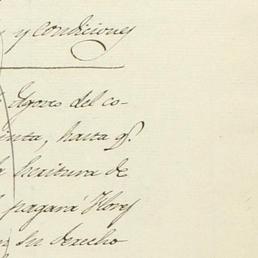 y condiciones
Ygoves del co-
inta, hasta qᵉ.
a heritura de
pagará Flores
su derecho